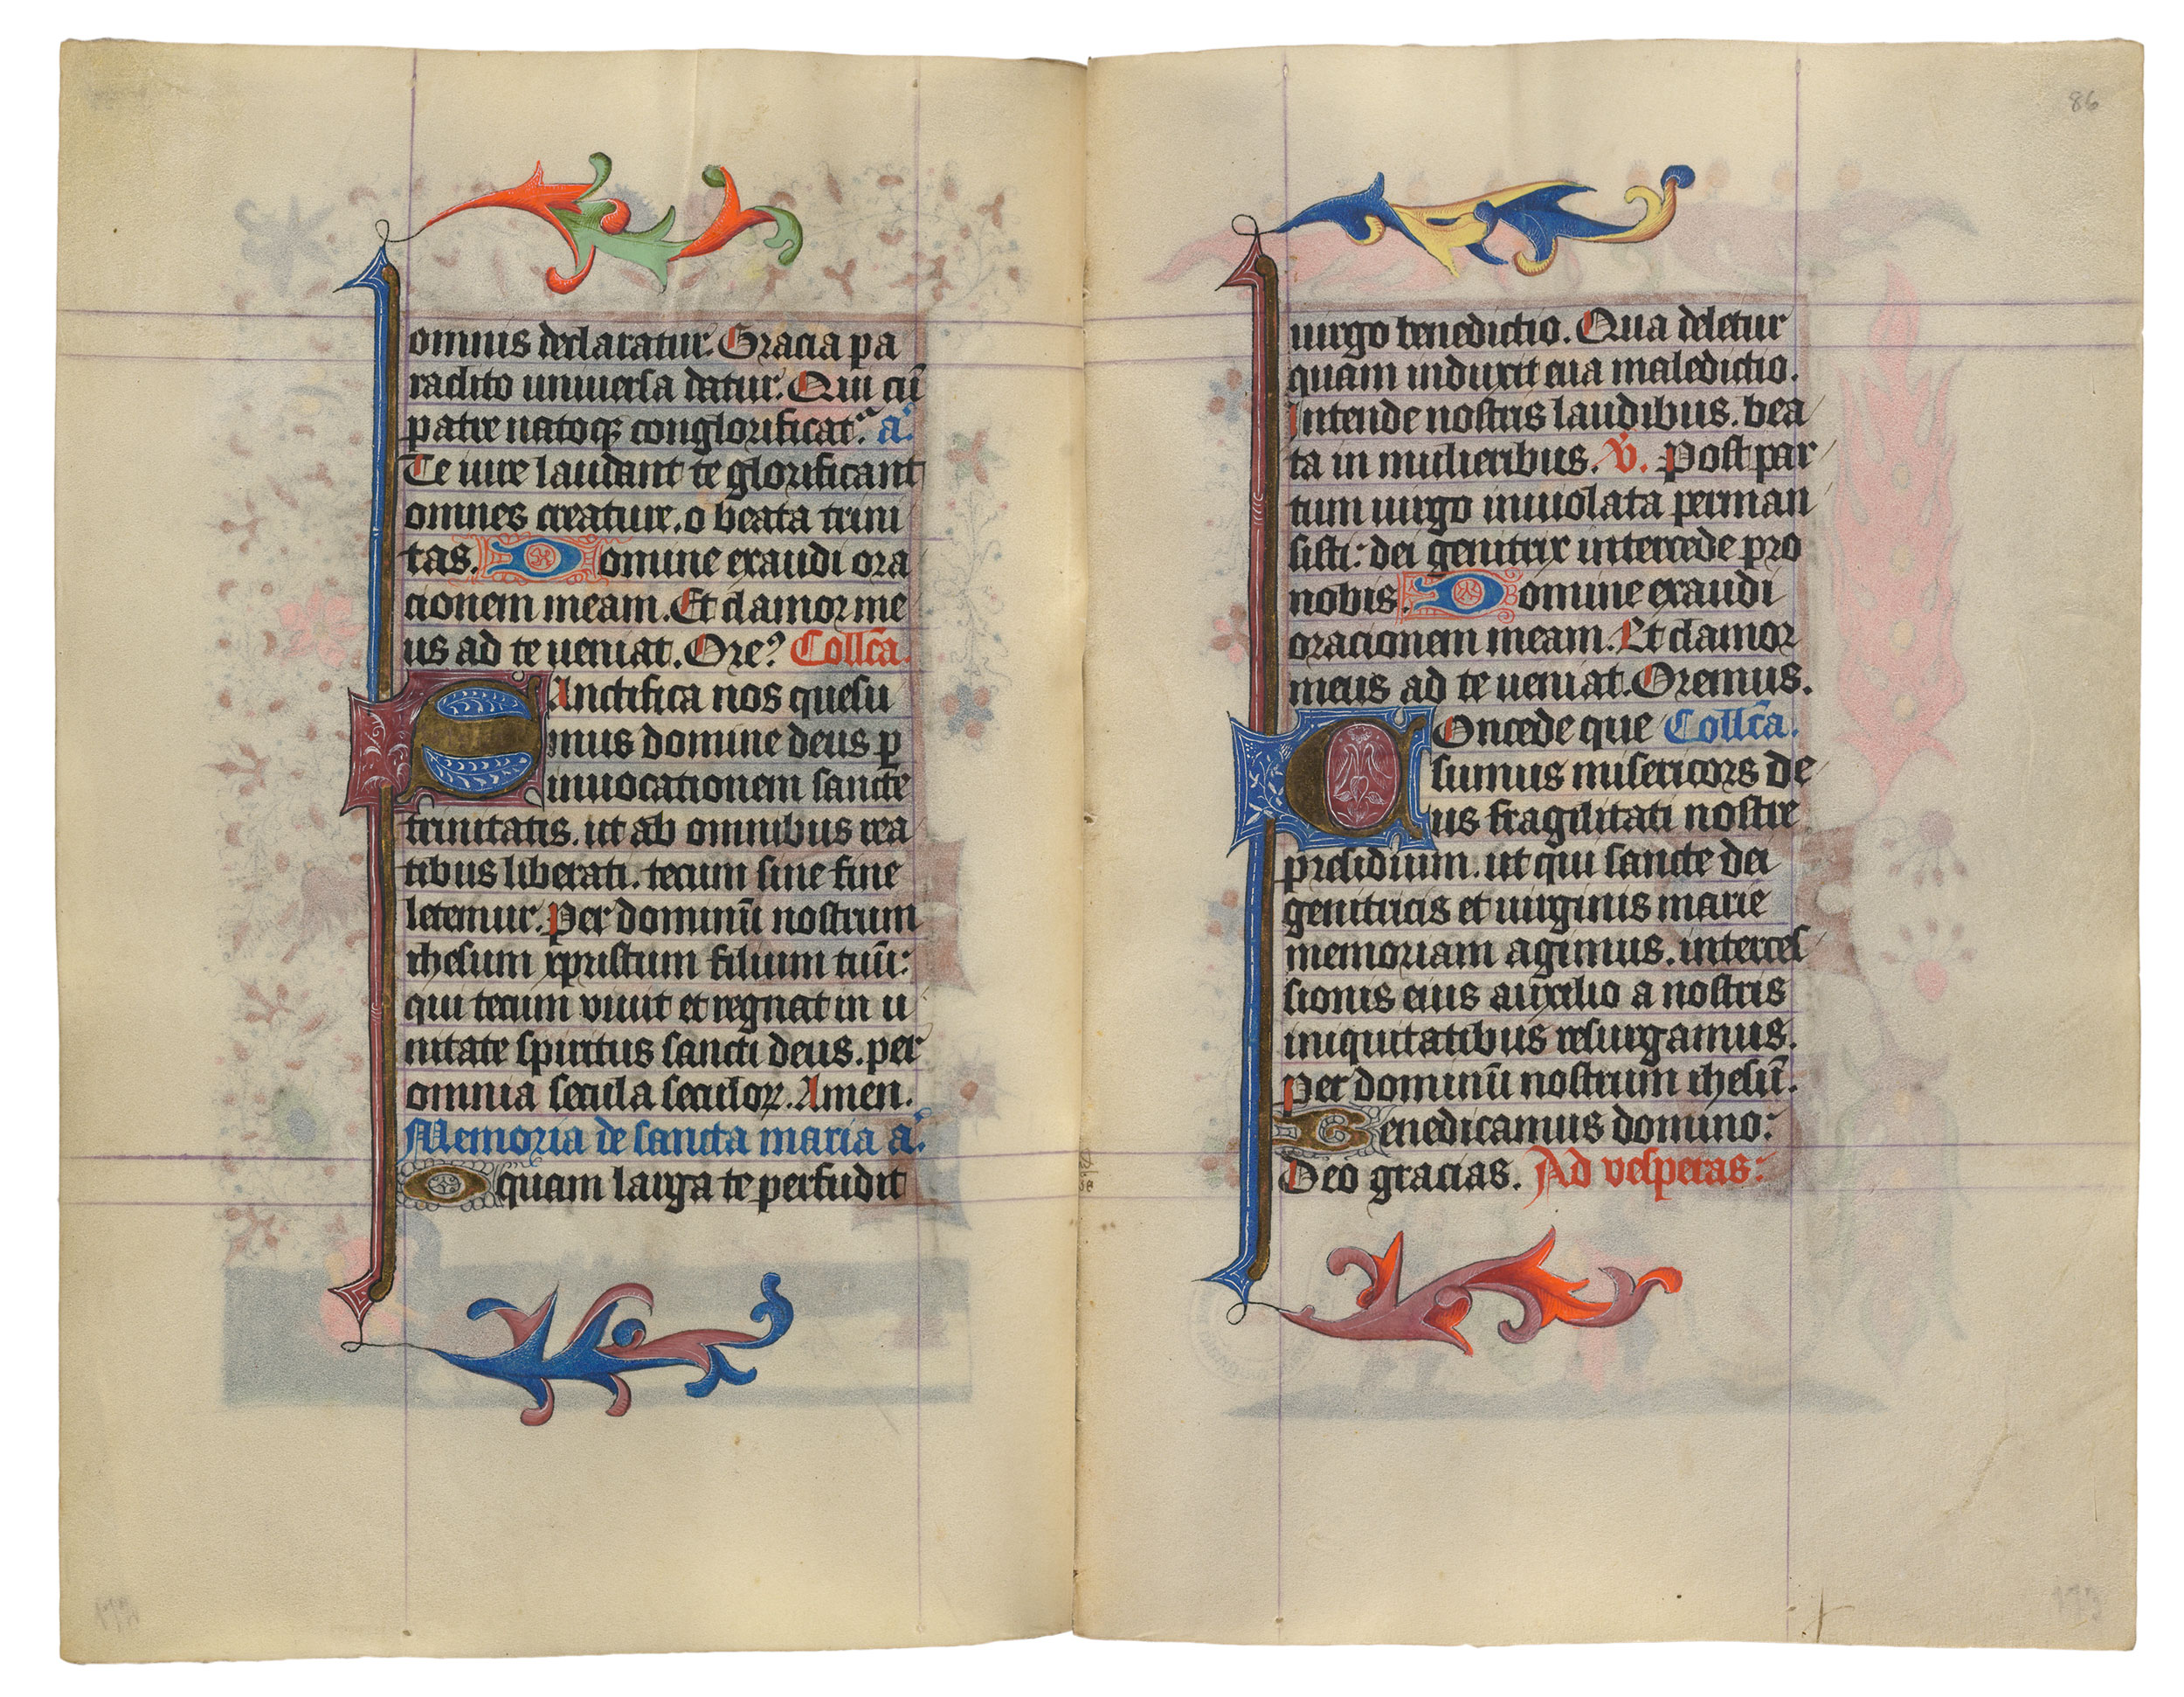 omnis declaratur. Gracia pa
raclito universa datur. Qui cū
patre natoqȝ conglorificat᷑. a̾.
Te iure laudant te glorificant
omnes creature. o beata trini
tas. Domine exaudi ora
cionem meam. Et clamor me
us ad te ueniat. Ore? Collc̄a.
SAnctifica nos quesu
mus domine deus ꝑ
inuocationem sancte
trinitatis. ut ab omnibus rea
tibus liberati. tecum sine fine
letemur. Per dominū nostrum
ihesum xpristum filium tuū:
qui tecum viuit et regnat in u
nitate spiritus sancti deus. per
omnia secula seculoꝝ. Amen.
Memoria de sancta maria a̾.
O quam larga te perfudit
86
uirgo benedictio. Qua deletur
quam induxit eua maledictio.
Intende nostris laudibus. bea
ta in mulieribus. V̾. Post par
tum uirgo inuiolata perman
sisti: dei genitrix intercede pro
nobis. Domine exaudi
oracionem meam. Et clamor
meus ad te ueniat. Oremus.
COncede que Collc̄a.
sumus misericors de
us fragilitati nostre
presidium. ut qui sancte dei
genitricis et uirginis marie
memoriam agimus. interces
sionis eius auxilio a nostris
iniquitatibus resurgamus.
Per dominū nostrum ihesū.
Benedicamus domino:
Deo gracias. Ad vesperas: